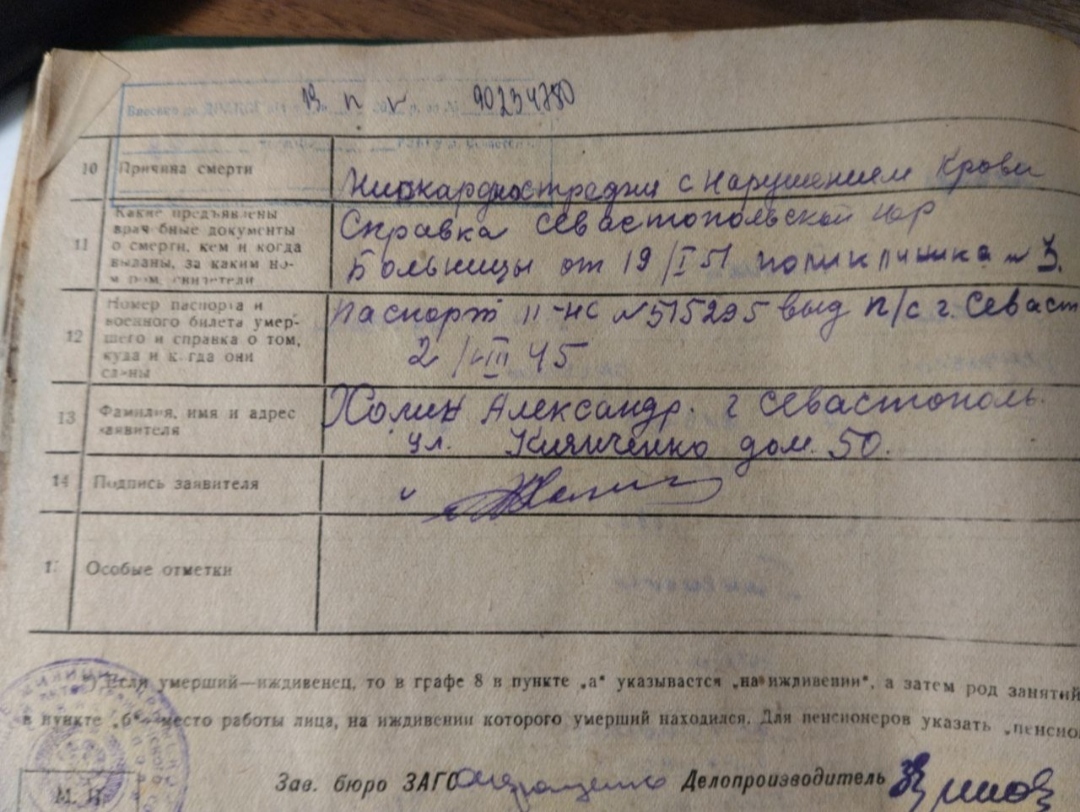 90234780
10 Причина смерти
Миокардиострофия с нарушением Крови
11 Какие предъявлены врачебные документы о смерти, кем и когда выданы, за каким номером, свидетели
Справка Севастопольской гор
Больницы от 19/I 51 поликлиника № 3.
12 Номер паспорта и военного билета умершего и справка о том, куда и когда они сданы
Паспорт II-НС № 515295 выд п/с г. Севаст
45
13 Фамилия, имя и адрес заявителя
Холин Александр. г Севастополь.
ул. дом. 50.
14 Подпись заявителя
Особые отметки
*) Если умерший—иждивенец, то в графе 8 в пункте „а“ указывается „на иждивении“, а затем род занятий
в пункте „б“—место работы лица, на иждивении которого умерший находился. Для пенсионеров указать „пенсио
Зав. бюро ЗАГС Делопроизводитель
М. П.